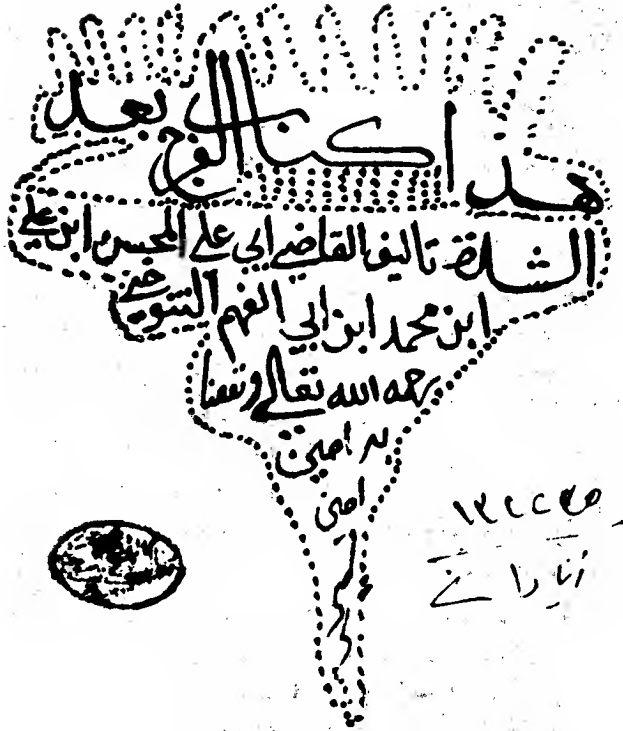 هذا كتاب الفرج بعد
الشدة تاليف القاضي ابي علي المحسن ابن علي
ابن محمد ابن ابي الفهم التنوخي
رحمه الله تعالى ونفعنا
به امين
امين